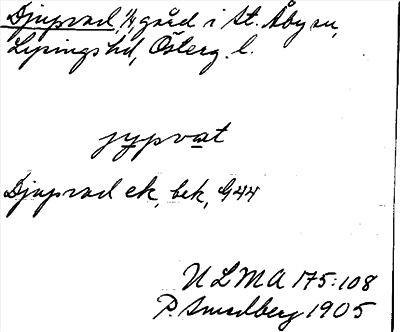 Djupvad, 1/1 gård i St. Åby sn,
Lysings hd, Österg. l.
jypvat
Djupvad ek, bek, G44
ULMA 175:108
P. Smedberg 1905